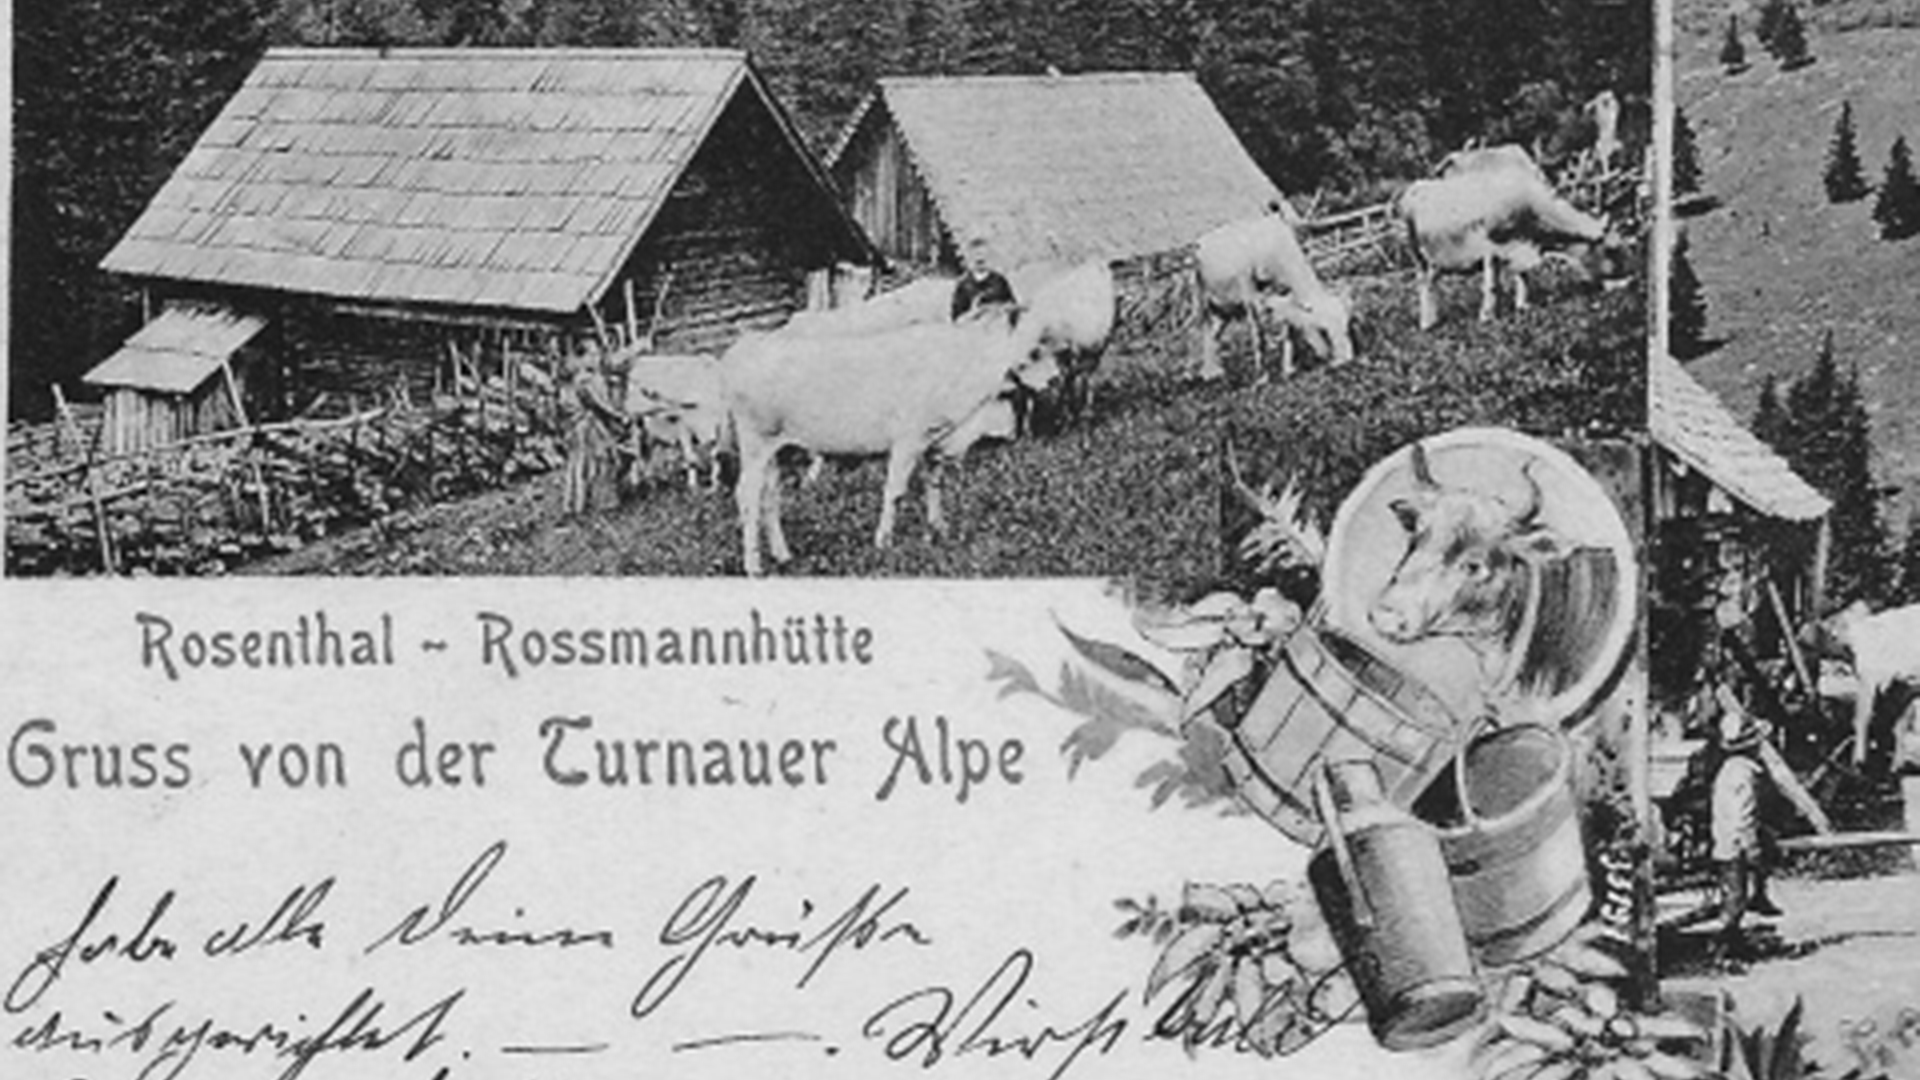 Rosenthal ~ Rossmannhütte
Gruss von der Turnauer Alpe
habe alle Deine Grüße
ausgerichtet. — — . Wirst bald